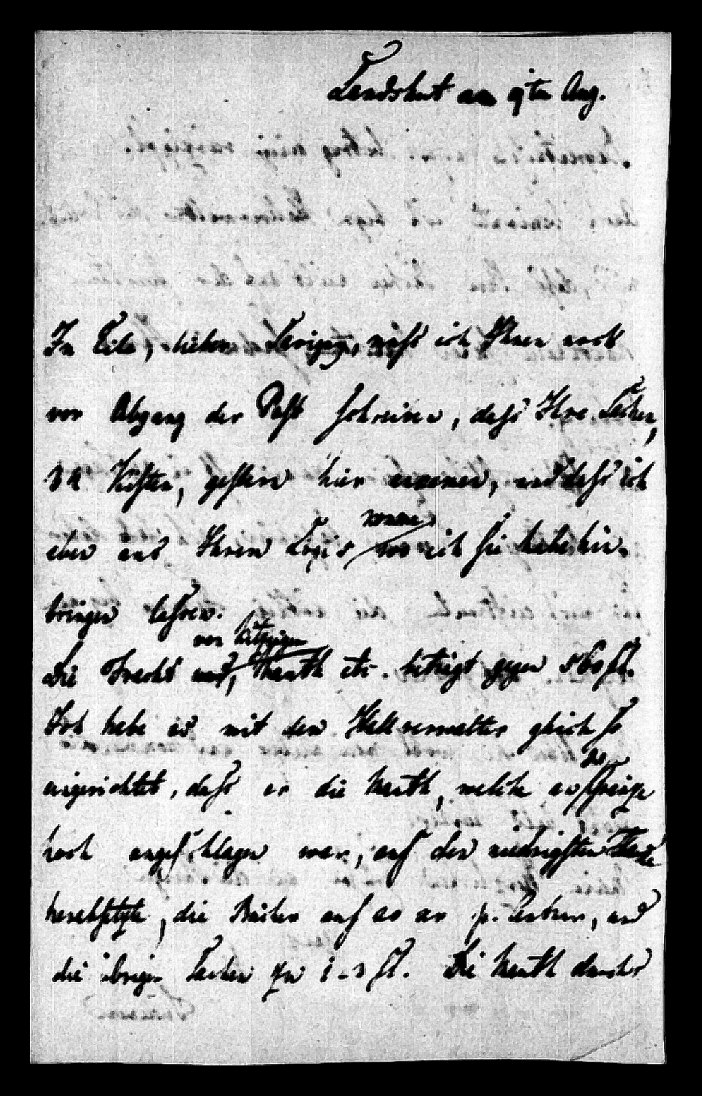 Landshut am 9ten Aug.
In Eile, lieber Savigny, muß ich Ihnen noch
vor Abgang der Post schreiben, daß Ihre Sachen,
32 Kisten, gestern hier ankamen, und daß ich
eben aus Ihrem Logis komme wo ich sie habe hin-
bringen lassen.
Die Fracht von Leipzig, Mauth etc. beträgt gegen 560 fl.
Ich habe es mit dem Hallverwalter gleich so
eingerichtet, daß er die Mauth, welche so
hoch angeschlagen war, auf den niedrigsten
herabsetzte, die Bücher auf 20 xr p. Centner, und
die übrigen Sachen zu 1-3 fl. Die Mauth